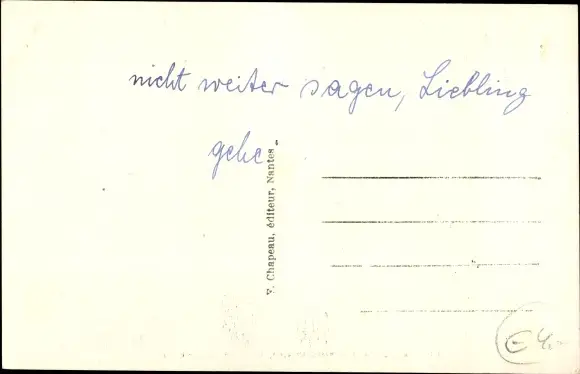 nicht weiter sagen, Liebling
gehe
V. Chapeau, éditeur, Nantes